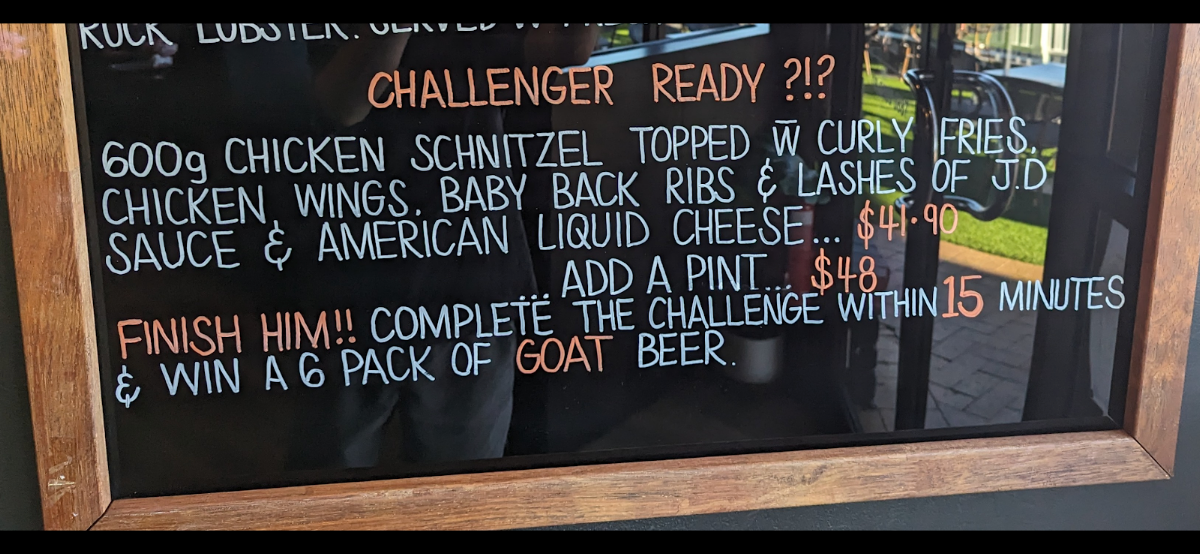 ROCK LOBSTER. SERVED W
CHALLENGER READY ?!?
600g CHICKEN SCHNITZEL TOPPED W̅ CURLY FRIES,
CHICKEN WINGS, BABY BACK RIBS & LASHES OF J.D
SAUCE & AMERICAN LIQUID CHEESE... $41.90
... ADD A PINT... $48
FINISH HIM!! COMPLETE THE CHALLENGE WITHIN 15 MINUTES
& WIN A 6 PACK OF GOAT BEER.